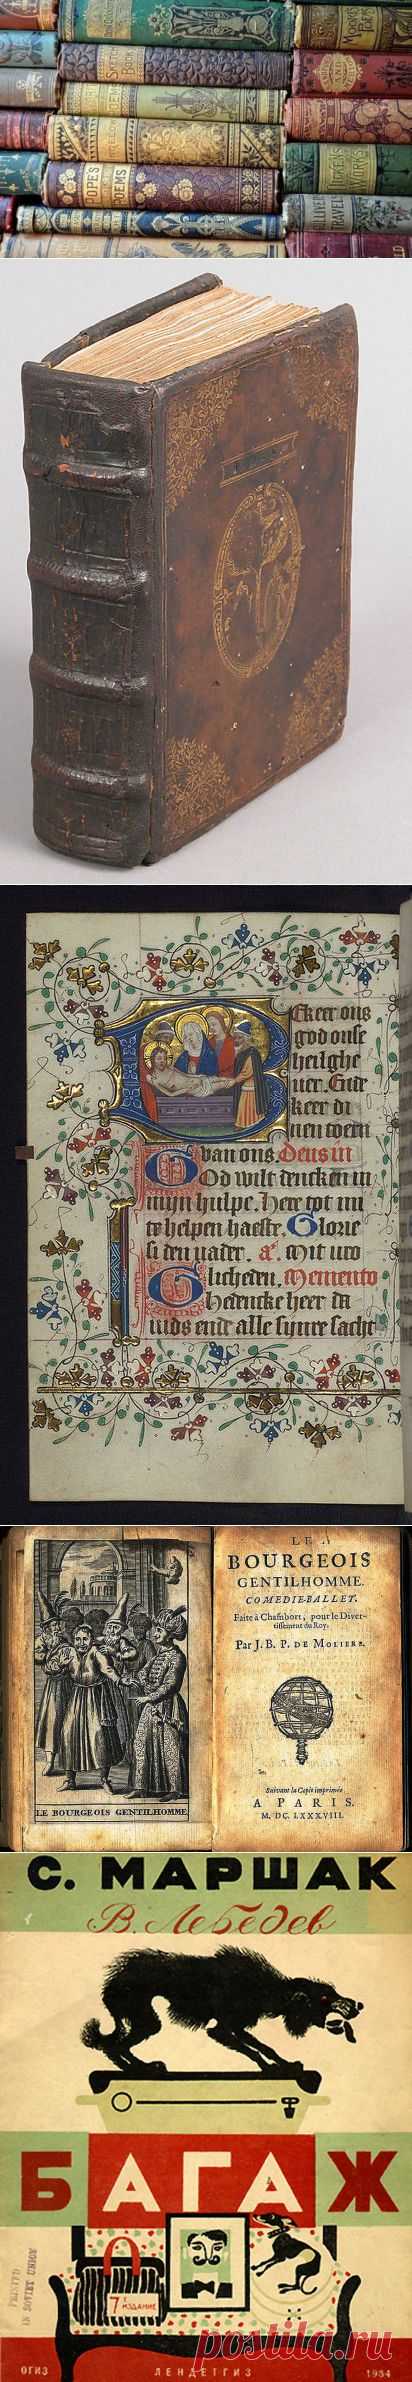 SKETCH
BOOK
POEMS
POPE'S
POEMS
DICKENS
WORKS
TRAVELS
Bekeer ons
god onse
heilghe
uer. Ende
keer di
nen toern
van ons. Deus in
God wilt dencken in
mijn hulpe. Here tot mi
te helpen haeste. Glorie
si den vader. &c. Mit uro
licheden. Memento
Ghedencke heer da
uids ende alle sijnre sacht
LE BOURGEOIS GENTILHOMME
LE
BOURGEOIS
GENTILHOMME.
COMEDIE-BALLET.
Faite à Chambort, pour le Diver-
tissement du Roy.
Par J. B. P. DE MOLIERE.
Suivant la Copie imprimée
A PARIS.
M. DC. LXXXVIII.
С. МАРШАК
В. Лебедев
БАГАЖ
7е ИЗДАНИЕ
PRINTED
IN SOVIET UNION
ОГИЗ ЛЕНДЕТГИЗ 1934
postila.ru